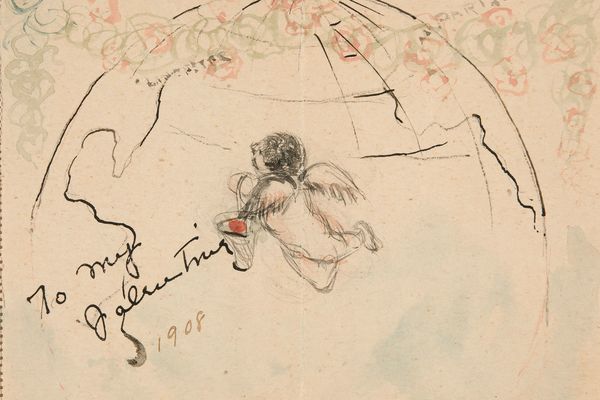 To my
Valentine
1908